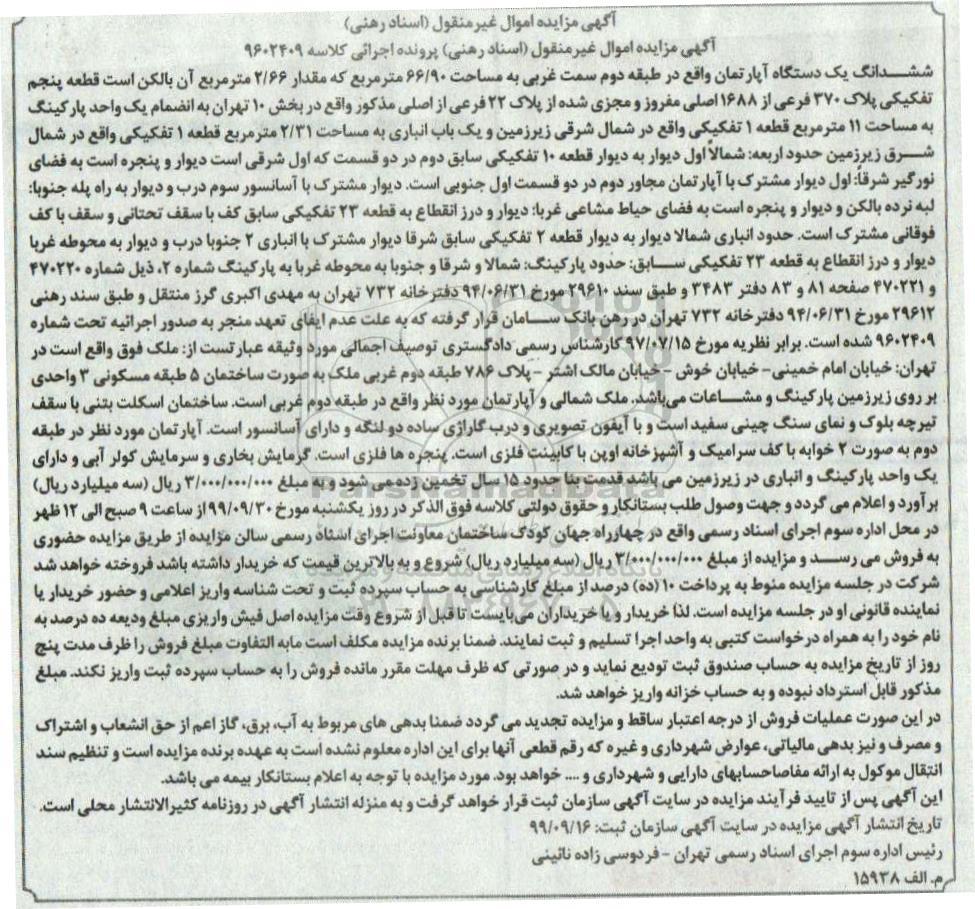 آگهی مزایده اموال غیرمنقول (اسناد رهنی)
آگهی مزایده اموال غیرمنقول (اسناد رهنی) پرونده اجرائی کلاسه ۹۶۰۲۴۰۹
ششدانگ یک دستگاه آپارتمان واقع در طبقه دوم سمت غربی به مساحت ۶۶/۹۰ مترمربع که مقدار ۲/۶۶ مترمربع آن بالکن است قطعه پنجم
تفکیکی پلاک ۳۷۰ فرعی از ۱۶۸۸ اصلی مفروز و مجزی شده از پلاک ۲۲ فرعی از اصلی مذکور واقع در بخش ۱۰ تهران به انضمام یک واحد پارکینگ
به مساحت ۱۱ مترمربع قطعه ۱ تفکیکی واقع در شمال شرقی زیرزمین و یک باب انباری به مساحت ۲/۳۱ مترمربع قطعه ۱ تفکیکی واقع در شمال
شرق زیرزمین حدود اربعه: شمالاً اول دیوار به دیوار قطعه ۱۰ تفکیکی سابق دوم در دو قسمت که اول شرقی است دیوار و پنجره است به فضای
نورگیر شرقاً: اول دیوار مشترک با آپارتمان مجاور دوم در دو قسمت اول جنوبی است. دیوار مشترک با آسانسور سوم درب و دیوار به راه پله جنوبا:
لبه نرده بالکن و دیوار و پنجره است به فضای حیاط مشاعی غربا: دیوار و درز انقطاع به قطعه ۲۳ تفکیکی سابق کف با سقف تحتانی و سقف با کف
فوقانی مشترک است. حدود انباری شمالا دیوار به دیوار قطعه ۲ تفکیکی سابق شرقا دیوار مشترک با انباری ۲ جنوبا درب و دیوار به محوطه غربا
دیوار و درز انقطاع به قطعه ۲۳ تفکیکی سابق: حدود پارکینگ: شمالا و شرقا و جنوبا به محوطه غربا به پارکینگ شماره ۰۲ ذیل شماره ۴۷۰۲۲۰
و ۴۷۰۲۲۱ صفحه ۸۱ و ۸۳ دفتر ۳۴۸۳ و طبق سند ۲۹۶۱۰ مورخ ۹۴/۰۶/۳۱ دفترخانه ۷۳۲ تهران به مهدی اکبری گرز منتقل و طبق سند رهنی
۲۹۶۱۲ مورخ ۹۴/۰۶/۳۱ دفترخانه ۷۳۲ تهران در رهن بانک سامان قرار گرفته که به علت عدم ایفای تعهد منجر به صدور اجرائیه تحت شماره
۹۶۰۲۴۰۹ شده است. برابر نظریه مورخ ۹۷/۰۷/۱۵ کارشناس رسمی دادگستری توصیف اجمالی مورد وثیقه عبارتست از: ملک فوق واقع است در
تهران: خیابان امام خمینی- خیابان خوش - خیابان مالک اشتر - پلاک ۷۸۶ طبقه دوم غربی ملک به صورت ساختمان ۵ طبقه مسکونی ۳ واحدی
بر روی زیرزمین پارکینگ و مشاعات می‌باشد. ملک شمالی و آپارتمان مورد نظر واقع در طبقه دوم غربی است. ساختمان اسکلت بتنی با سقف
تیرچه بلوک و نمای سنگ چینی سفید است و با آیفون تصویری و درب گاراژی ساده دو لنگه و دارای آسانسور است. آپارتمان مورد نظر در طبقه
دوم به صورت ۲ خوابه با کف سرامیک و آشپزخانه اوپن با کابینت فلزی است. پنجره ها فلزی است. گرمایش بخاری و سرمایش کولر آبی و دارای
یک واحد پارکینگ و انباری در زیرزمین می باشد قدمت بنا حدود ۱۵ سال تخمین زده می شود و به مبلغ ۳/۰۰۰/۰۰۰/۰۰۰ ریال (سه میلیارد ریال)
برآورد و اعلام می گردد و جهت وصول طلب بستانکار و حقوق دولتی کلاسه فوق الذکر در روز یکشنبه مورخ ۹۹/۰۹/۳۰ از ساعت ۹ صبح الی ۱۲ ظهر
در محل اداره سوم اجرای اسناد رسمی واقع در چهارراه جهان کودک ساختمان معاونت اجرای اسناد رسمی سالن مزایده از طریق مزایده حضوری
به فروش می رسد و مزایده از مبلغ ۳/۰۰۰/۰۰۰/۰۰۰ ریال (سه میلیارد ریال) شروع و به بالاترین قیمت که خریدار داشته باشد فروخته خواهد شد
شرکت در جلسه مزایده منوط به پرداخت ۱۰ (ده) درصد از مبلغ کارشناسی به حساب سپرده ثبت و تحت شناسه واریز اعلامی و حضور خریدار یا
نماینده قانونی او در جلسه مزایده است. لذا خریدار و یا خریداران می‌بایست تا قبل از شروع وقت مزایده اصل فیش واریزی مبلغ ودیعه ده درصد به
نام خود را به همراه درخواست کتبی به واحد اجرا تسلیم و ثبت نمایند. ضمنا برنده مزایده مکلف است مابه التفاوت مبلغ فروش را ظرف مدت پنج
روز از تاریخ مزایده به حساب صندوق ثبت تودیع نماید و در صورتی که ظرف مهلت مقرر مانده فروش را به حساب سپرده ثبت واریز نکند. مبلغ
مذکور قابل استرداد نبوده و به حساب خزانه واریز خواهد شد.
در این صورت عملیات فروش از درجه اعتبار ساقط و مزایده تجدید می گردد ضمنا بدهی های مربوط به آب، برق، گاز اعم از حق انشعاب و اشتراک
و مصرف و نیز بدهی مالیاتی، عوارض شهرداری و غیره که رقم قطعی آنها برای این اداره معلوم نشده است به عهده برنده مزایده است و تنظیم سند
انتقال موکول به ارائه مفاصاحسابهای دارایی و شهرداری و .... خواهد بود. مورد مزایده با توجه به اعلام بستانکار بیمه می باشد.
این آگهی پس از تایید فرآیند مزایده در سایت آگهی سازمان ثبت قرار خواهد گرفت و به منزله انتشار آگهی در روزنامه کثیرالانتشار محلی است.
تاریخ انتشار آگهی مزایده در سایت آگهی سازمان ثبت: ۹۹/۰۹/۱۶
رئیس اداره سوم اجرای اسناد رسمی تهران - فردوسی زاده نائینی
م. الف ۱۵۹۳۸